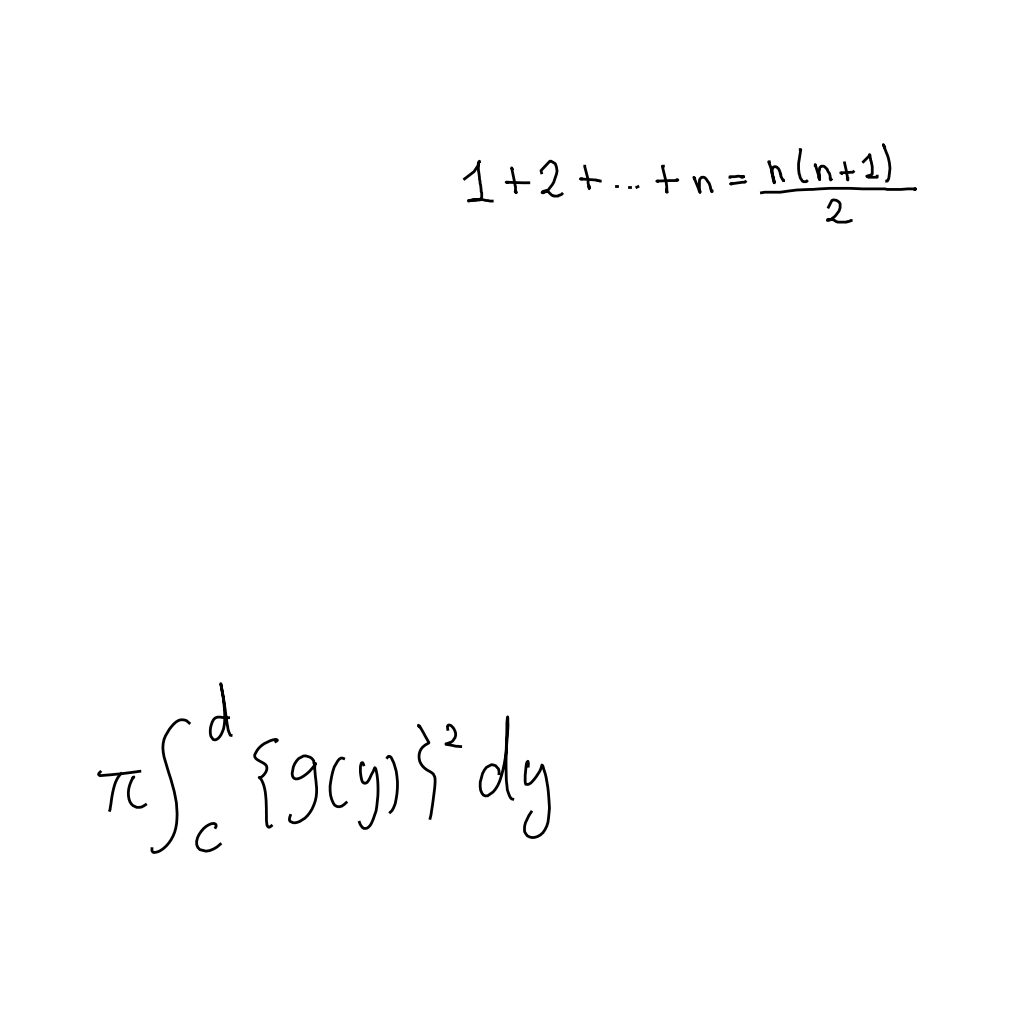 1+2+...+n = \frac{n(n+1)}{2}
\pi \int_{c}^{d} \{g(y)\}^2 dy